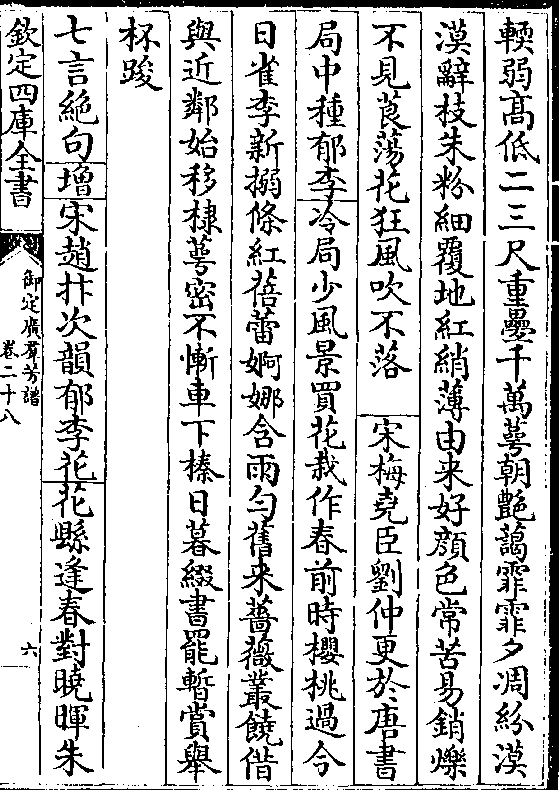 輭弱高低二三尺重疊千萬蕚朝艷藹霏霏夕凋紛漠
漠辭枝朱粉細覆地紅綃薄由来好顔色常苦易銷爍
不見莨蕩花狂風吹不落　宋梅堯臣劉仲更於唐書
局中種郁李冷局少風景買花栽作春前時櫻桃過今
日雀李新搦條紅蓓蕾婀娜含雨勻舊来薔薇叢饒借
與近鄰始移棣蕚密不慚車下榛日暮綴書罷暫賞舉
杯踆
七言絶句增宋趙抃次韻郁李花花縣逢春對曉暉朱
欽定四庫全書
御定廣羣芳譜
卷二十八
六